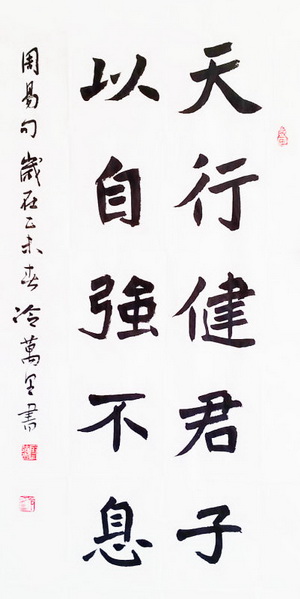 天行健君子
以自強不息
周易句歲在乙未春冷萬里書